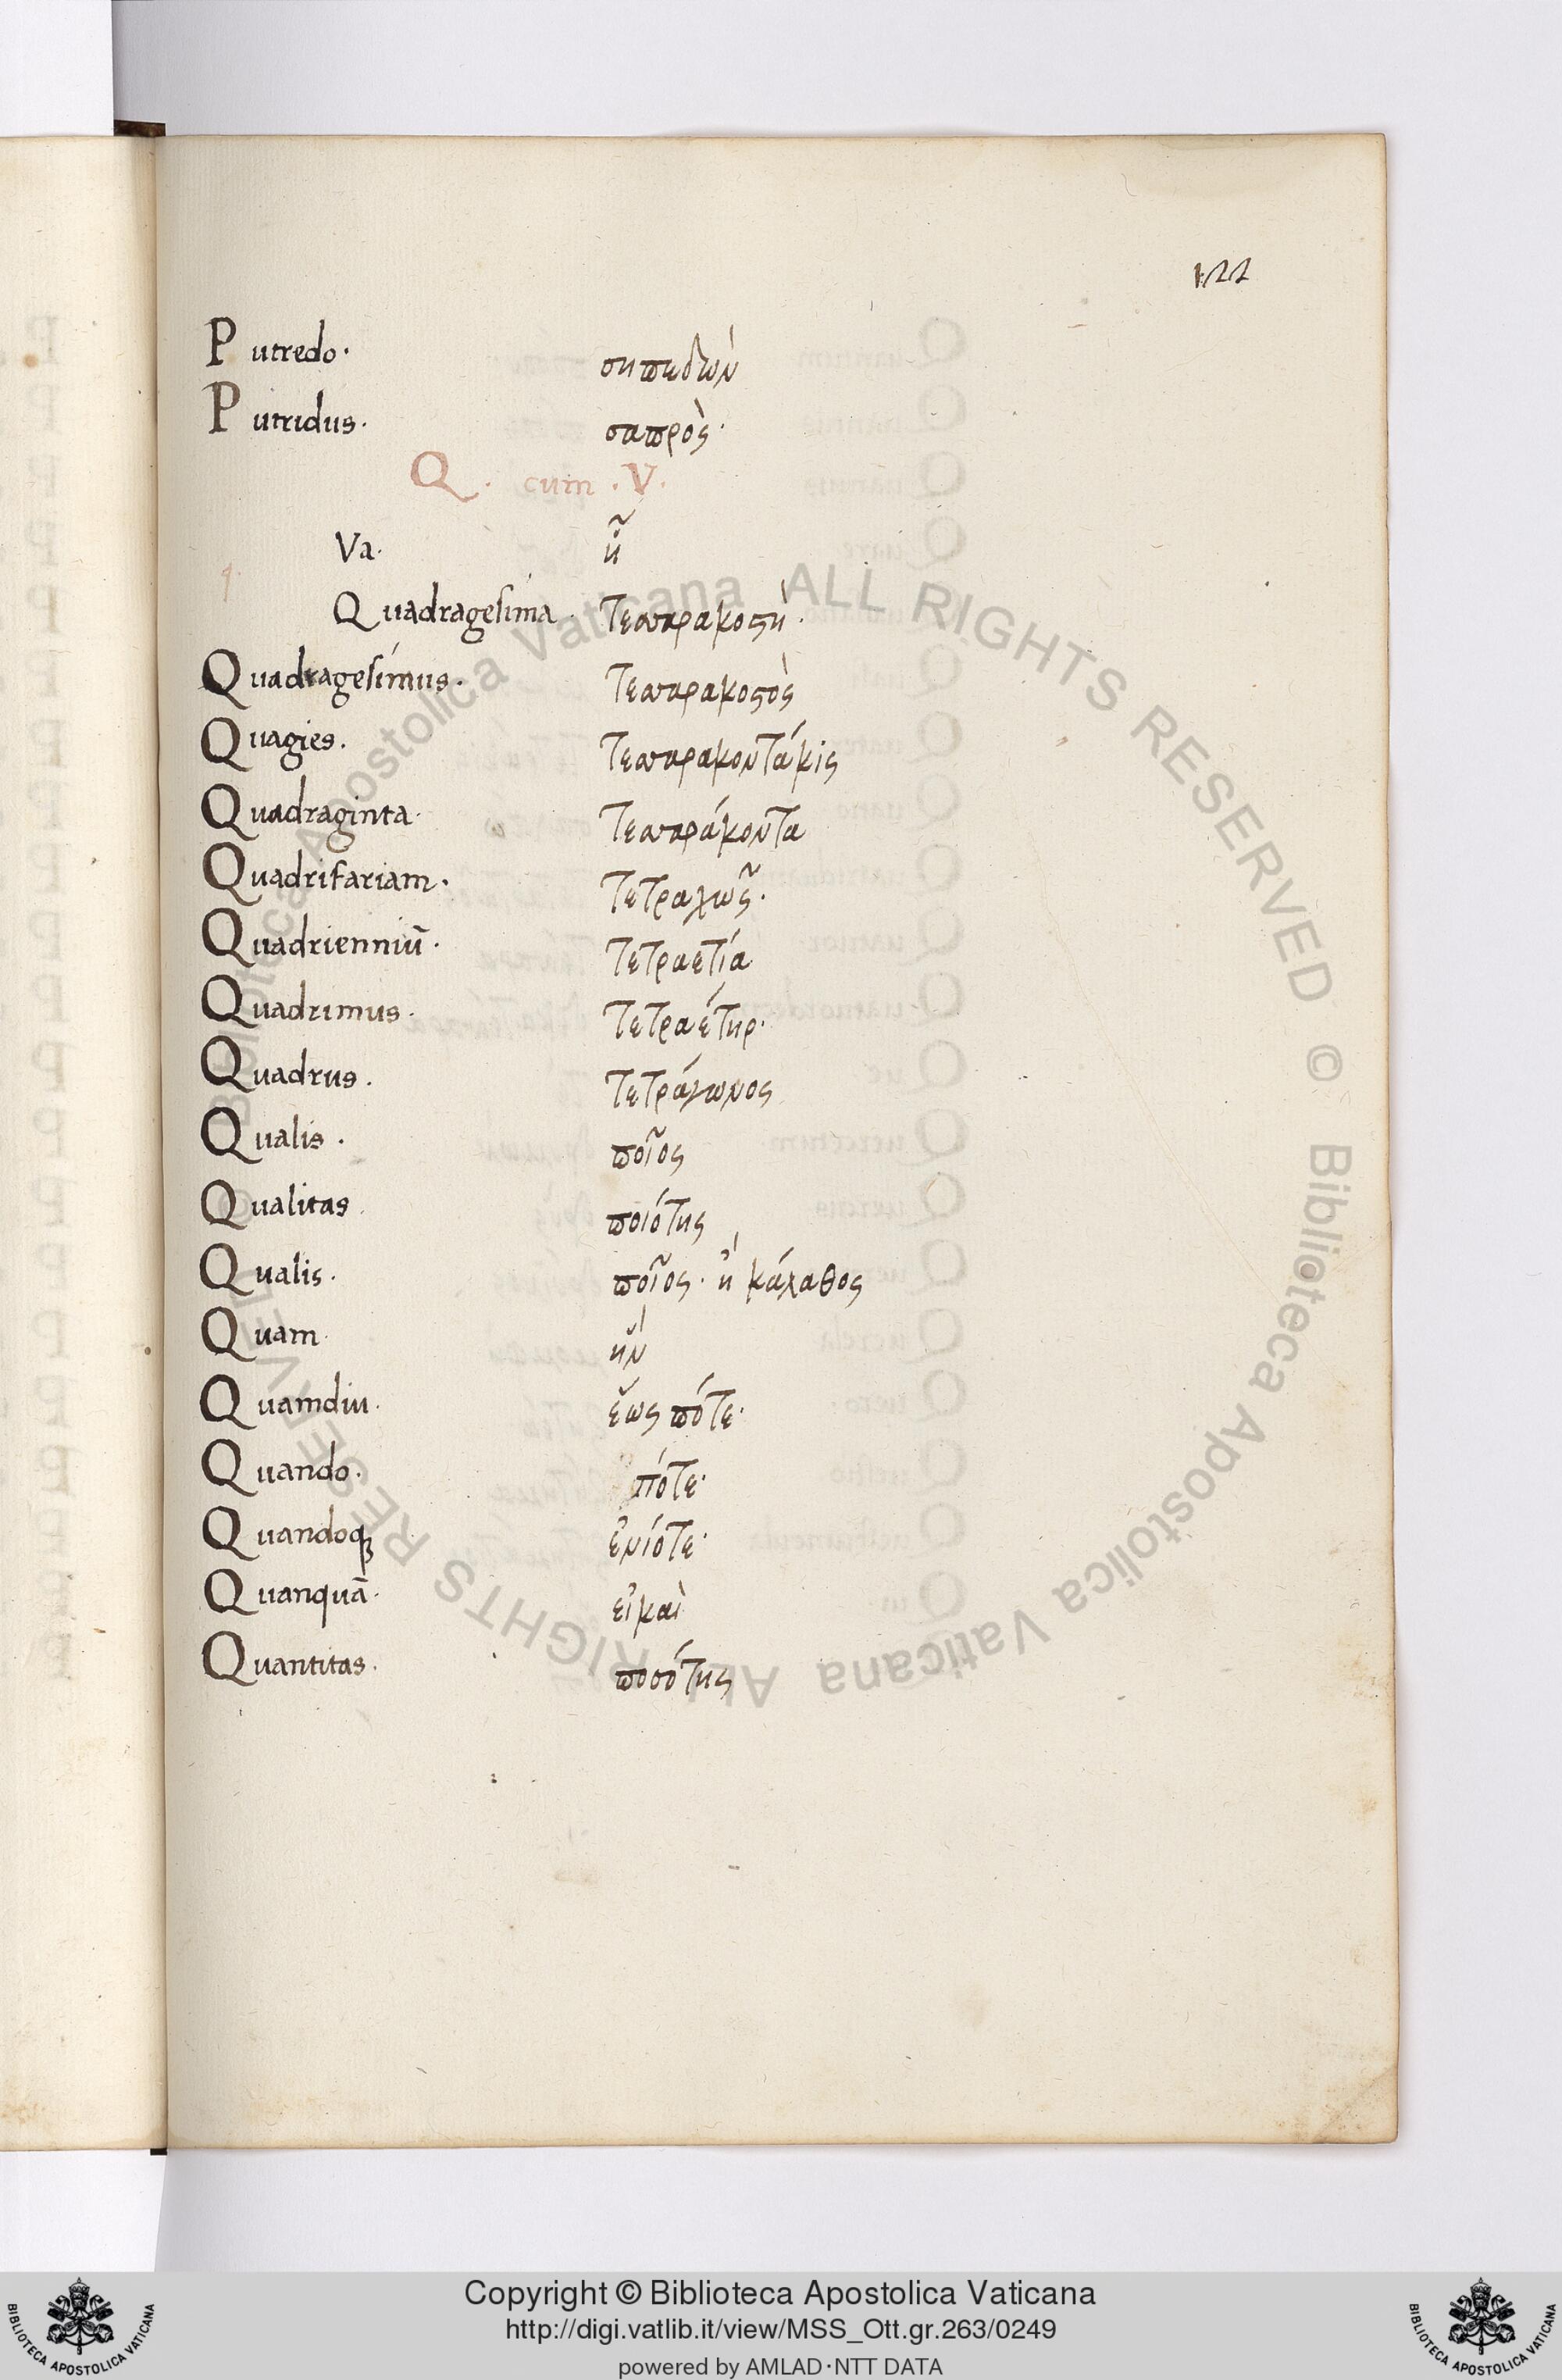 122
Putredo. σηπεδὼν
Putridus. σαπρὸς.
Q. cum. V.
Va. ἧ
q.
Quadragesima. Τεσσαρακοστὴ.
Quadragesimus. Τεσσαρακοστὸς
Quagies. Τεσσαρακοντάκις
Quadraginta. Τεσσαράκοντα
Quadrifariam. Τετραχῶς.
Quadrienniū. Τετραετία
Quadrimus. Τετραέτηρ.
Quadrus. Τετράγωνος
Qualis. ποῖος
Qualitas. ποιότης
Qualis. ποῖος. ἢ κάλαθος
Quam. ἢν
Quamdiu. ἕως πότε.
Quando. πότε.
Quandoqꝫ ἐνίοτε.
Quanquā. εἰ καὶ
Quantitas. ποσότης
© Biblioteca Apostolica Vaticana ALL RIGHTS RESERVED © Biblioteca Apostolica Vaticana ALL RIGHTS RESERVED
Copyright © Biblioteca Apostolica Vaticana
http://digi.vatlib.it/view/MSS_Ott.gr.263/0249
powered by AMLAD·NTT DATA
BIBLIOTECA APOSTOLICA VATICANA
BIBLIOTECA APOSTOLICA VATICANA